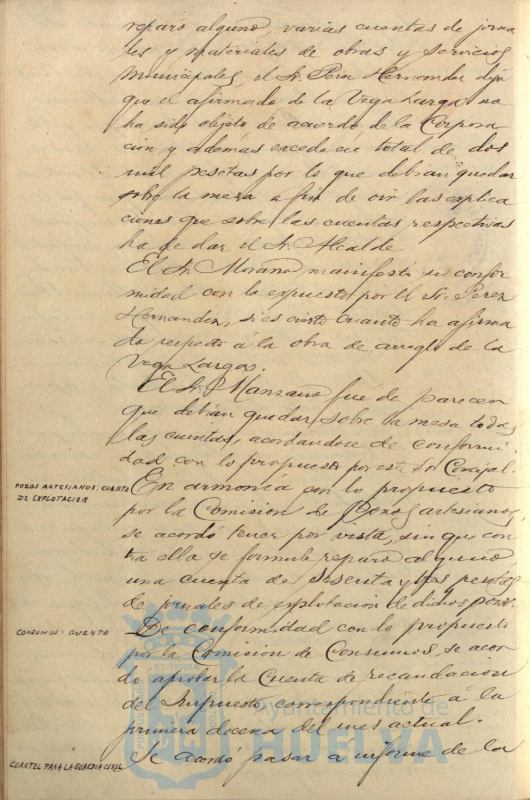 reparo alguno, varias cuentas de jorna
les y materiales de obras y servicios
municipales, el Sr. Perez Hernandez dijo
que el afirmado de la Vega Larga no
ha sido objeto de acuerdo de la Corpora
cion y además excede en total de dos
mil pesetas por lo que debian quedar
sobre la mesa a fin de oir las explica
ciones que sobre las cuentas respectivas
ha de dar el Sr. Alcalde.
El Sr. Morano manifestó su confor
midad con lo expuesto por el Sr. Perez
Hernandez, si es cierto cuanto ha afirma
do respecto á la obra de arreglo de la
Vega Larga.
El Sr. Manzano fué de parecer
que debian quedar sobre la mesa todas
las cuentas, acordandose de conformi
dad con lo propuesto por este Sr. Concejal.
POZOS ARTESIANOS: CUENTA
DE EXPLOTACION
En armonia con lo propuesto
por la Comision de Pozos artesianos,
se acordó tener por vista, sin que con
tra ella se formule reparo alguno
una cuenta de sesenta y dos pesetas
de jornales de explotacion de dichos pozos.
CONSUMOS: CUENTA
De conformidad con lo propuesto
por la Comision de Consumos, se acor
dó aprobar la Cuenta de recaudacion
del Impuesto correspondiente á la
primera decena del mes actual.
CUARTEL PARA LA GUARDIA CIVIL
Se acordó pasar a informe de la
Ayuntamiento de
HUELVA